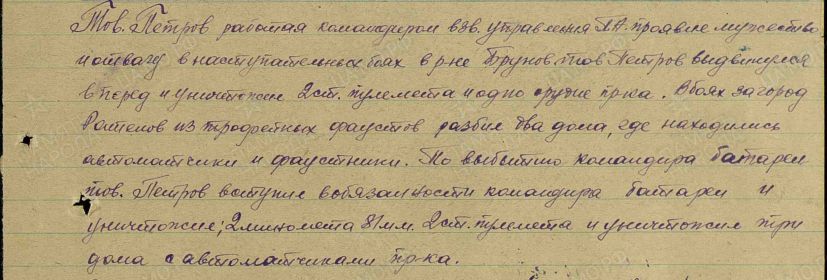 Тов. Петров работая командиром взв. управления ПА. проявил мужество
и отвагу в наступательных боях в р-не Брунов. тов Петров выдвинулся
вперед и уничтожил 2 ст. пулемета и одно орудие пр-ка. В боях за город
Рателов из трофейных фаустов разбил два дома, где находились
автоматчики и фаустники. По выбытию командира батареи
тов. Петров вступил в обязанности командира батареи и
уничтожил; 2 миномета 81 мм. 2 ст. пулемета и уничтожил три
дома с автоматчиками пр-ка.